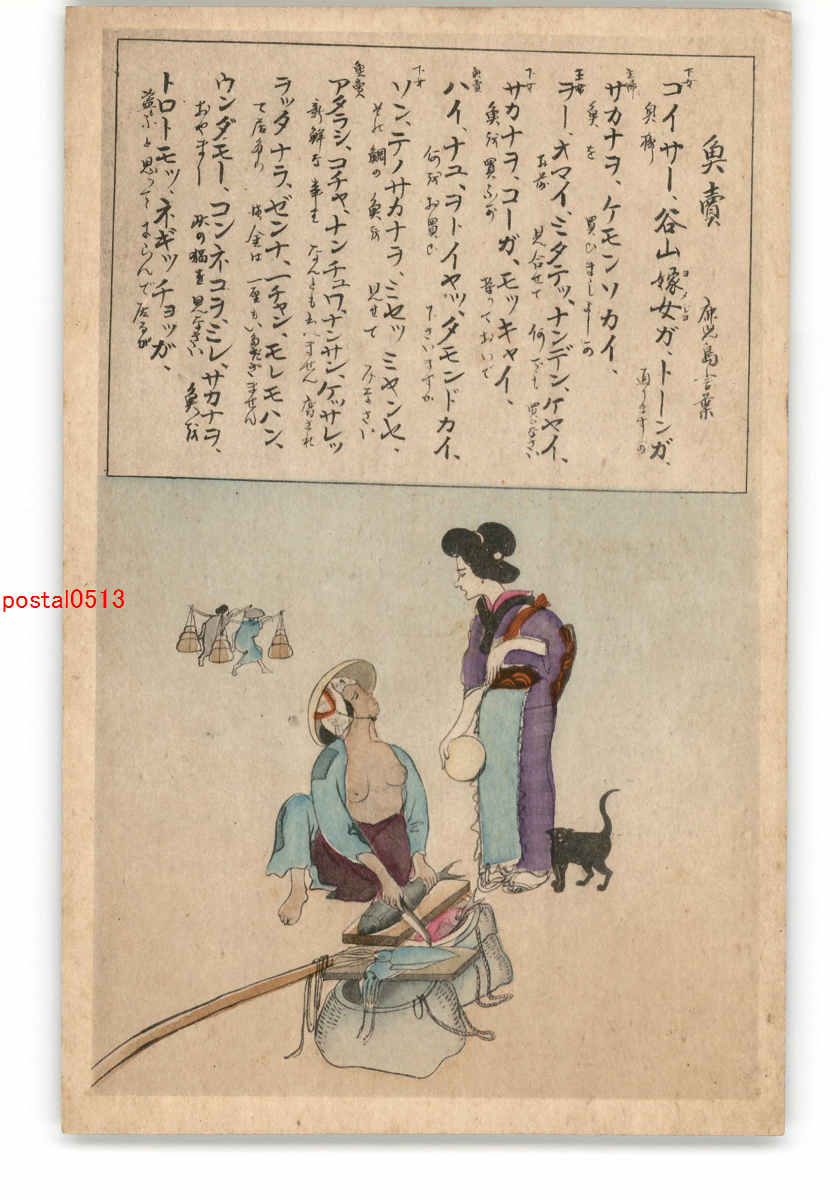 魚賣 鹿児島言葉
下女
コイサー、谷山嫁女ガ、トーンガ、
ヨメジョ
奥様 通りますが
主婦
サカナヲ、ケモンソカイ、
魚を 買ひましようか
主婦
ヲー、オマイ、ミタテッ、ナンデン、ケヤイ、
お前 見合せて 何でも 買ひなさい
下女
サカナヲ、コーガ、モッキャイ、
魚を買ふが 持つておいで
魚賣
ハイ、ナユ、ヲトイヤッ、ダモンドカイ、
何をお買ひ 下さいますか
下女
ソン、テノサカナヲ、ミセッ ミヤンセ、
其の鯛の魚を 見せて みなさい
魚賣
アタラシ、コチャ、ナンチュワ、ナンサン、ケッサレッ
新鮮な事は なんとも云ひません 腐され
ラッタナラ、ゼンナ、一チャン、モレモハン、
て居たら 賃金は 一厘もいたゞきません
ウンダモー、コンネコヲ、ミレ、サカナヲ、
おやまー 此の猫を見なさい 魚を
トロトモッ、ネギッチョッガ、
盗ふと思つて ねらんで居るが
postal0513